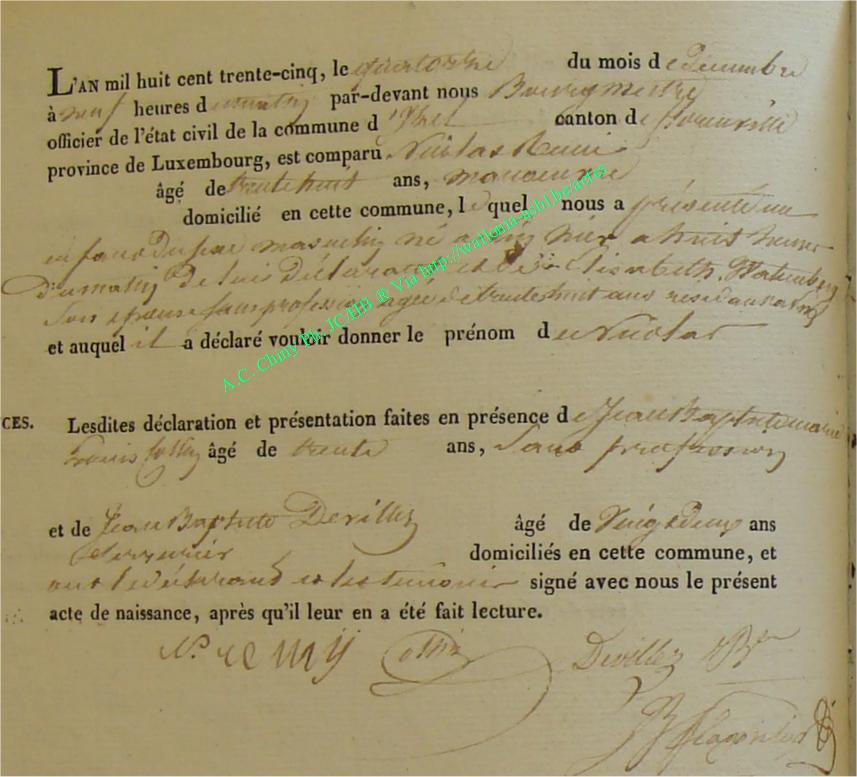 L'AN mil huit cent trente-cinq, le quatorze du mois de décembre
à neuf heures du matin par-devant nous Bourgmestre
officier de l'état civil de la commune d' canton de florenville
province de Luxembourg, est comparu Nicolas Remi
âgé de trente huit ans, manoeuvre
domicilié en cette commune, le quel nous a présenté un
enfant du sexe masculin né hier a huit heures
du matin de lui déclarant et de Elisabeth
son épouse sans profession agée de trente huit ans
et auquel il a déclaré vouloir donner le prénom de Nicolas
A.C. Chiny Ph. JC/HB ® Via http://wallonia-asbl.be/actes
CES. Lesdites déclaration et présentation faites en présence de Jean Baptiste marie
Louis Collin âgé de trente ans, Sans profession
et de Jean Baptiste Devillez âgé de Vingt deux ans
Serrurier domiciliés en cette commune, et
ont le déclarant et les temoins signé avec nous le présent
acte de naissance, après qu'il leur en a été fait lecture.
N. remy Collin Devillez JBte